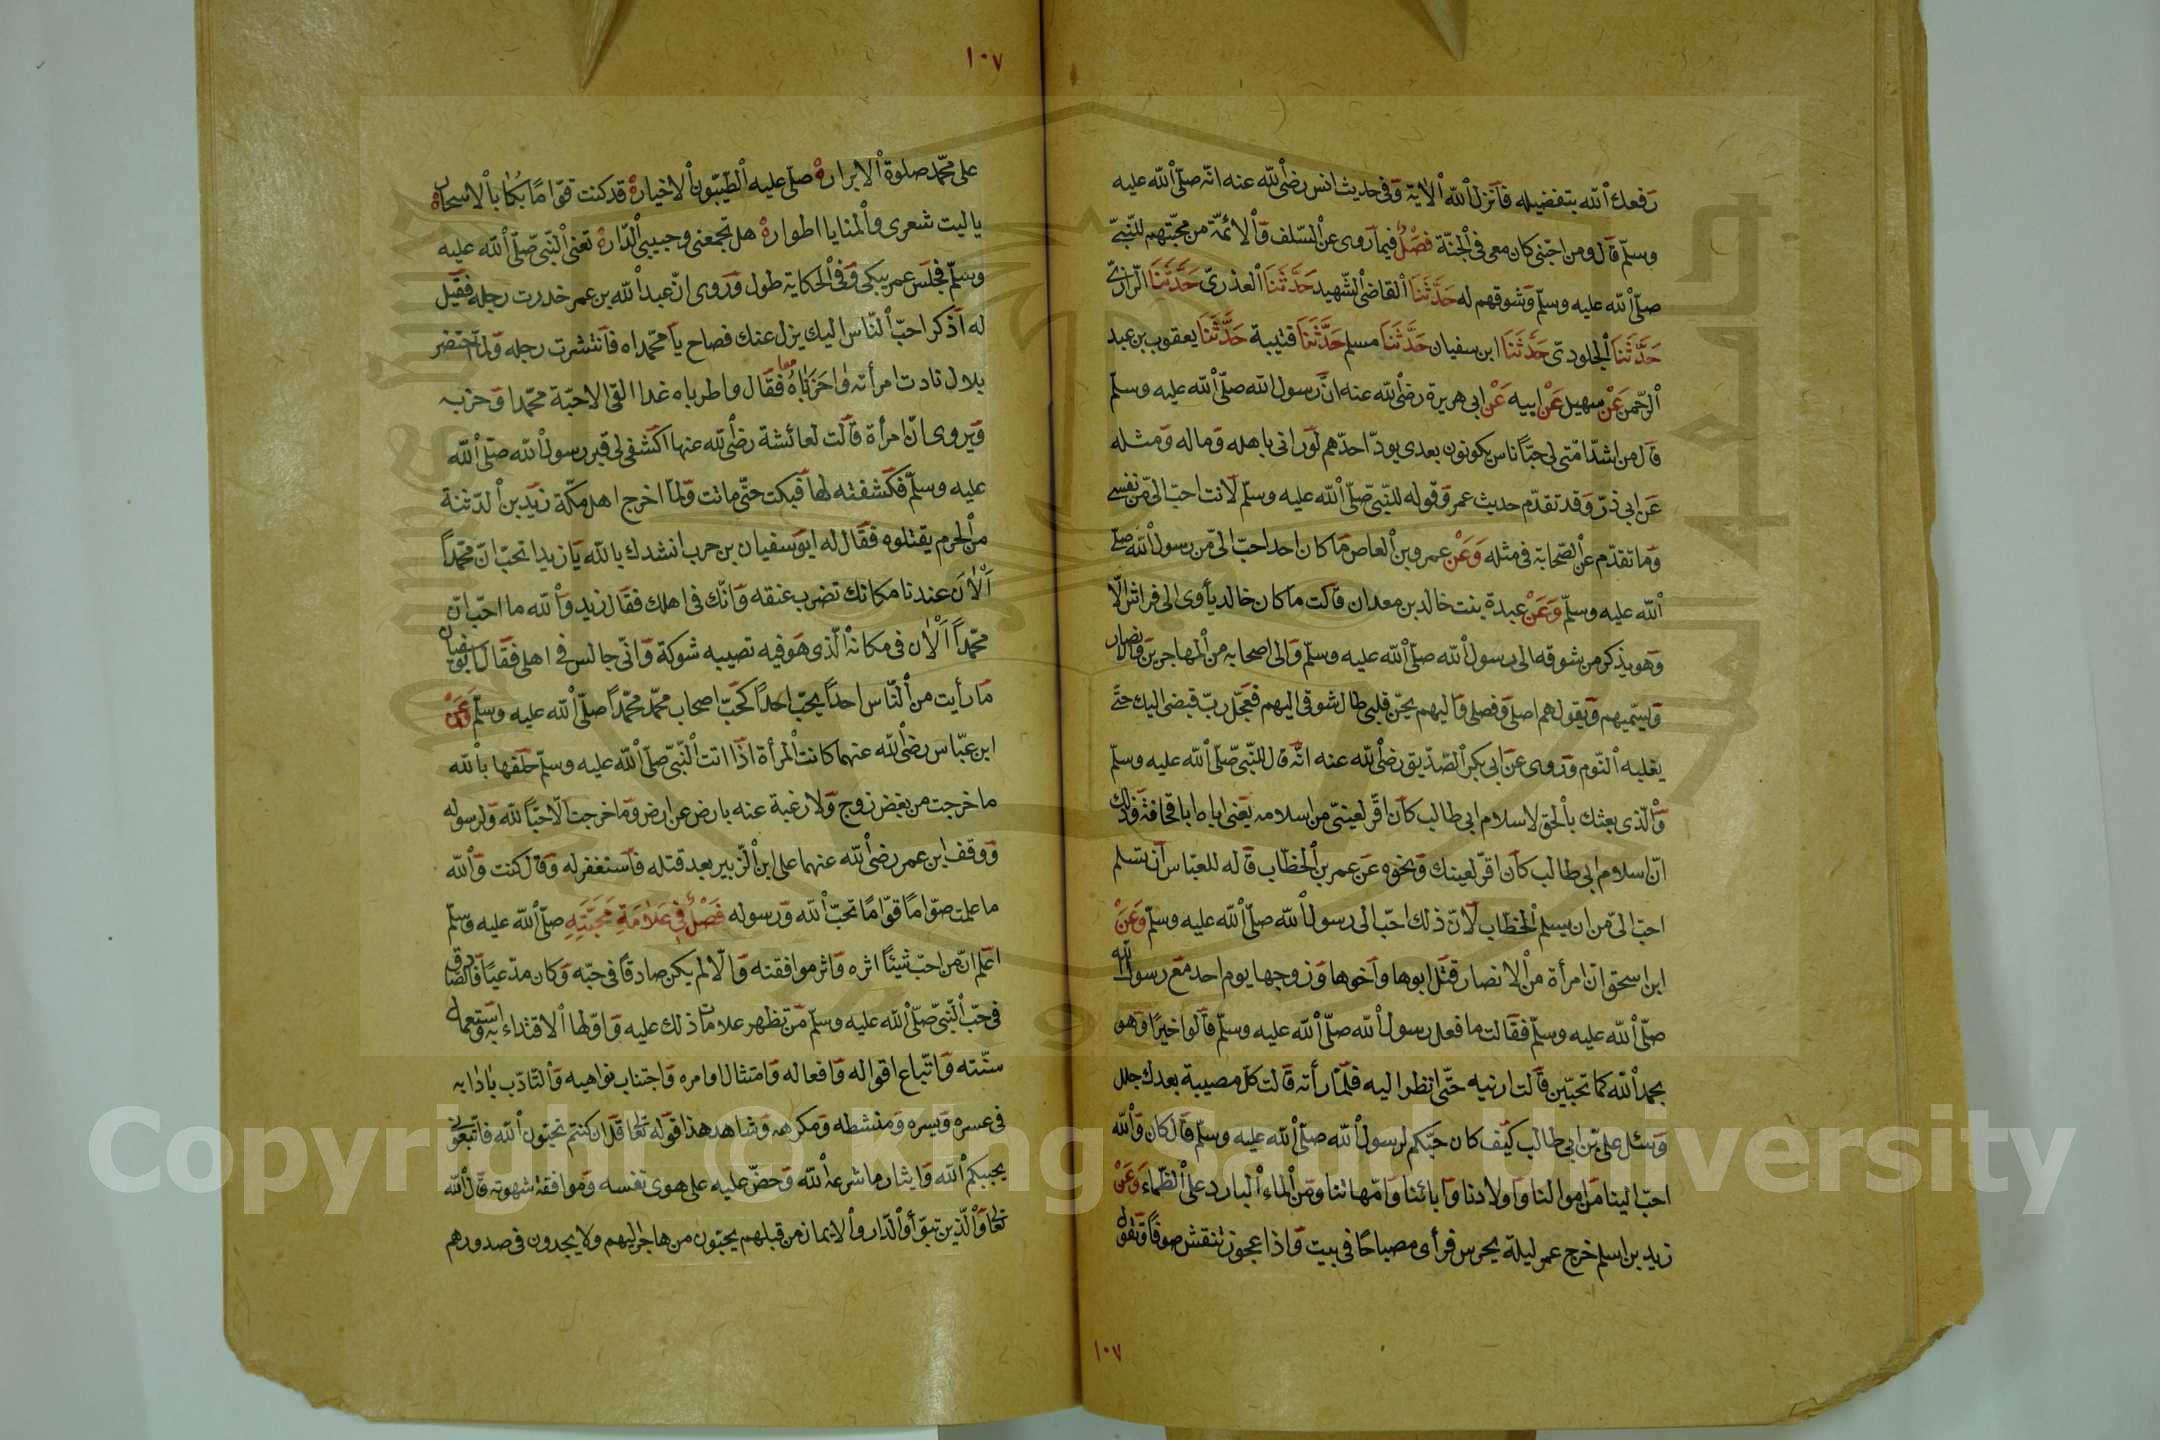 رفعك الله بتفضيله فأنزل الله الآية وفي حديث انس رضي الله عنه انه صلى الله عليه
وسلم قال ومن احبني كان معي في الجنة فصل فيما روى عن السلف والائمة من محبتهم للنبي
صلى الله عليه وسلم وشوقهم له حدثنا القاضي الشهيد حدثنا العذري حدثنا الرازي
حدثنا الجلودي حدثنا ابن سفيان حدثنا مسلم حدثنا قتيبة حدثنا يعقوب بن عبد
الرحمن عن سهيل عن ابيه عن ابي هريرة رضي الله عنه ان رسول الله صلى الله عليه وسلم
قال من اشد امتي لي حبا ناس يكونون بعدي يود احدهم لو رآني باهله وماله ومثله
عن ابي ذر وقد تقدم حديث عمر وقوله للنبي صلى الله عليه وسلم لانت احب الي من نفسي
وما تقدم عن الصحابة في مثله وعن عمرو بن العاص ما كان احد احب الي من رسول الله صلى
الله عليه وسلم وعن عبدة بنت خالد بن معدان قالت ما كان خالد يأوى الى فراش الا
وهو يذكر من شوقه الى رسول الله صلى الله عليه وسلم والى اصحابه من المهاجرين والانصار
ويسميهم ويقول هم اصلي وفصلي واليهم يحن قلبي طال شوقي اليهم فعجل رب قبضي اليك حتى
يغلبه النوم وروى عن ابي بكر الصديق رضي الله عنه انه قال للنبي صلى الله عليه وسلم
والذي بعثك بالحق لاسلام ابي طالب كان اقر لعيني من اسلامه يعني اباه ابا قحافة وذلك
ان اسلام ابي طالب كان اقر لعينك ونحوه عن عمر بن الخطاب قاله للعباس ان تسلم
احب الي من ان يسلم الخطاب لان ذلك احب الى رسول الله صلى الله عليه وسلم وعن
ابن اسحق ان امرأة من الانصار قتل ابوها واخوها وزوجها يوم احد مع رسول الله
صلى الله عليه وسلم فقالت ما فعل رسول الله صلى الله عليه وسلم قالوا خيرا وهو
بحمد الله كما تحبين قالت ارنيه حتى انظر اليه فلما رأته قالت كل مصيبة بعدك جلل
وسئل علي بن ابي طالب كيف كان حبكم لرسول الله صلى الله عليه وسلم قال كان والله
احب الينا من اموالنا واولادنا وآبائنا وامهاتنا ومن الماء البارد على الظماء وعن
زيد بن اسلم خرج عمر ليلة يحرس فرأى مصباحا في بيت واذا عجوز تنقش صوفا وتقول
١٠٧
١٠٧
على محمد صلوة الابرار صلى عليه الطيبون الاخيار قد كنت قواما بكا بالاسحار
يا ليت شعرى والمنايا اطوار هل تجمعني وحبيبي الدار تعنى النبي صلى الله عليه
وسلم فجلس عمر يبكى وفي الحكاية طول وروى ان عبد الله بن عمر خدرت رجله فقيل
له اذكر احب الناس اليك يزل عنك فصاح يا محمداه فانتشرت رجله ولما احتضر
بلال نادت امرأته واحزناه فقال واطرباه غدا القى الاحبة محمدا وحزبه
ويروى ان امرأة قالت لعائشة رضي الله عنها اكشفي لي قبر رسول الله صلى الله
عليه وسلم فكشفته لها فبكت حتى ماتت ولما اخرج اهل مكة زيد بن الدثنة
من الحرم يقتلوه فقال له ابو سفيان بن حرب انشدك بالله يا زيد اتحب ان محمدا
الآن عندنا مكانك تضرب عنقه وانك في اهلك فقال زيد والله ما احب ان
محمدا الآن في مكانه الذي هو فيه تصيبه شوكة واني جالس في اهلي فقال ابو سفيان
ما رأيت من الناس احدا يحب احدا كحب اصحاب محمد محمدا صلى الله عليه وسلم وعن
ابن عباس رضي الله عنهما كانت المرأة اذا اتت النبي صلى الله عليه وسلم حلفها بالله
ما خرجت من بغض زوج ولا رغبة عنه بارض عن ارض وما خرجت الا حبا لله ولرسوله
ووقف ابن عمر رضي الله عنهما على ابن الزبير بعد قتله فاستغفر له وقال كنت والله
ما علمت صواما قواما تحب الله ورسوله فصل في علامة محبته صلى الله عليه وسلم
اعلم ان من احب شيئا اثره واثر موافقته والا لم يكن صادقا في حبه وكان مدعيا فالصادق
في حب النبي صلى الله عليه وسلم من تظهر علامات ذلك عليه واولها الاقتداء به واستعمال
سنته واتباع اقواله وافعاله وامتثال اوامره واجتناب نواهيه والتادب بادابه
في عسره ويسره ومنشطه ومكرهه وشاهد هذا قوله تعالى قل ان كنتم تحبون الله فاتبعوني
يحببكم الله وايثار ما شرعه الله وحض عليه على هوى نفسه وموافقة شهوته قال الله
تعالى والذين تبوأوا الدار والايمان من قبلهم يحبون من هاجر اليهم ولا يجدون في صدورهم
Copyright © King Saud University